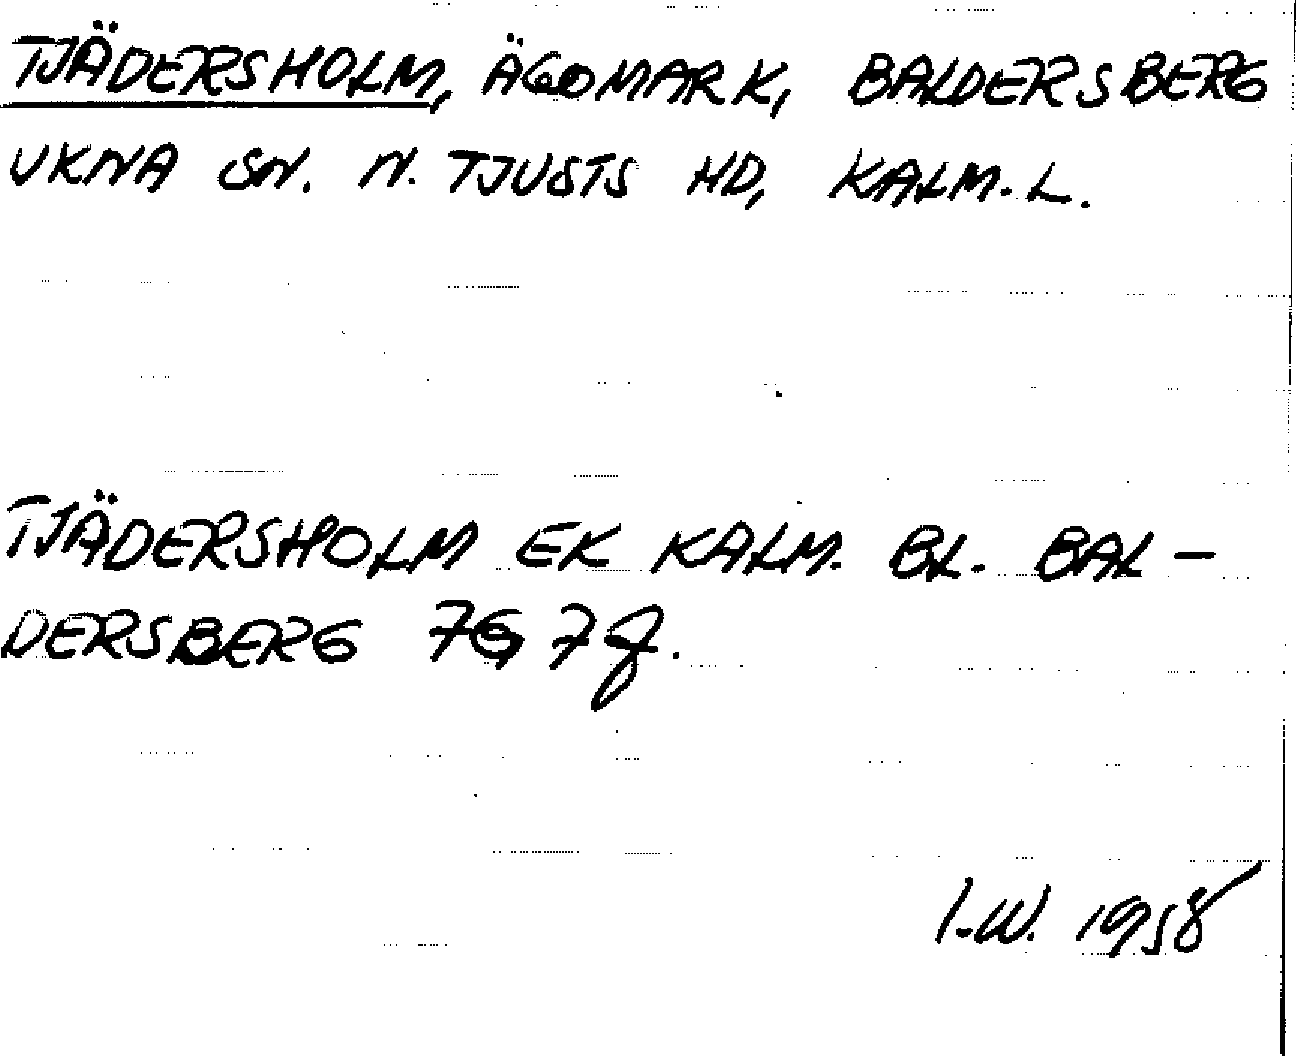 TJÄDERSHOLM, ÄGOMARK, BALDERSBERG
UKNA SN. N. TJUSTS HD, KALM. L.
TJÄDERSHOLM EK KALM. BL. BAL-
DERSBERG 7G 7f.
I.W. 1958